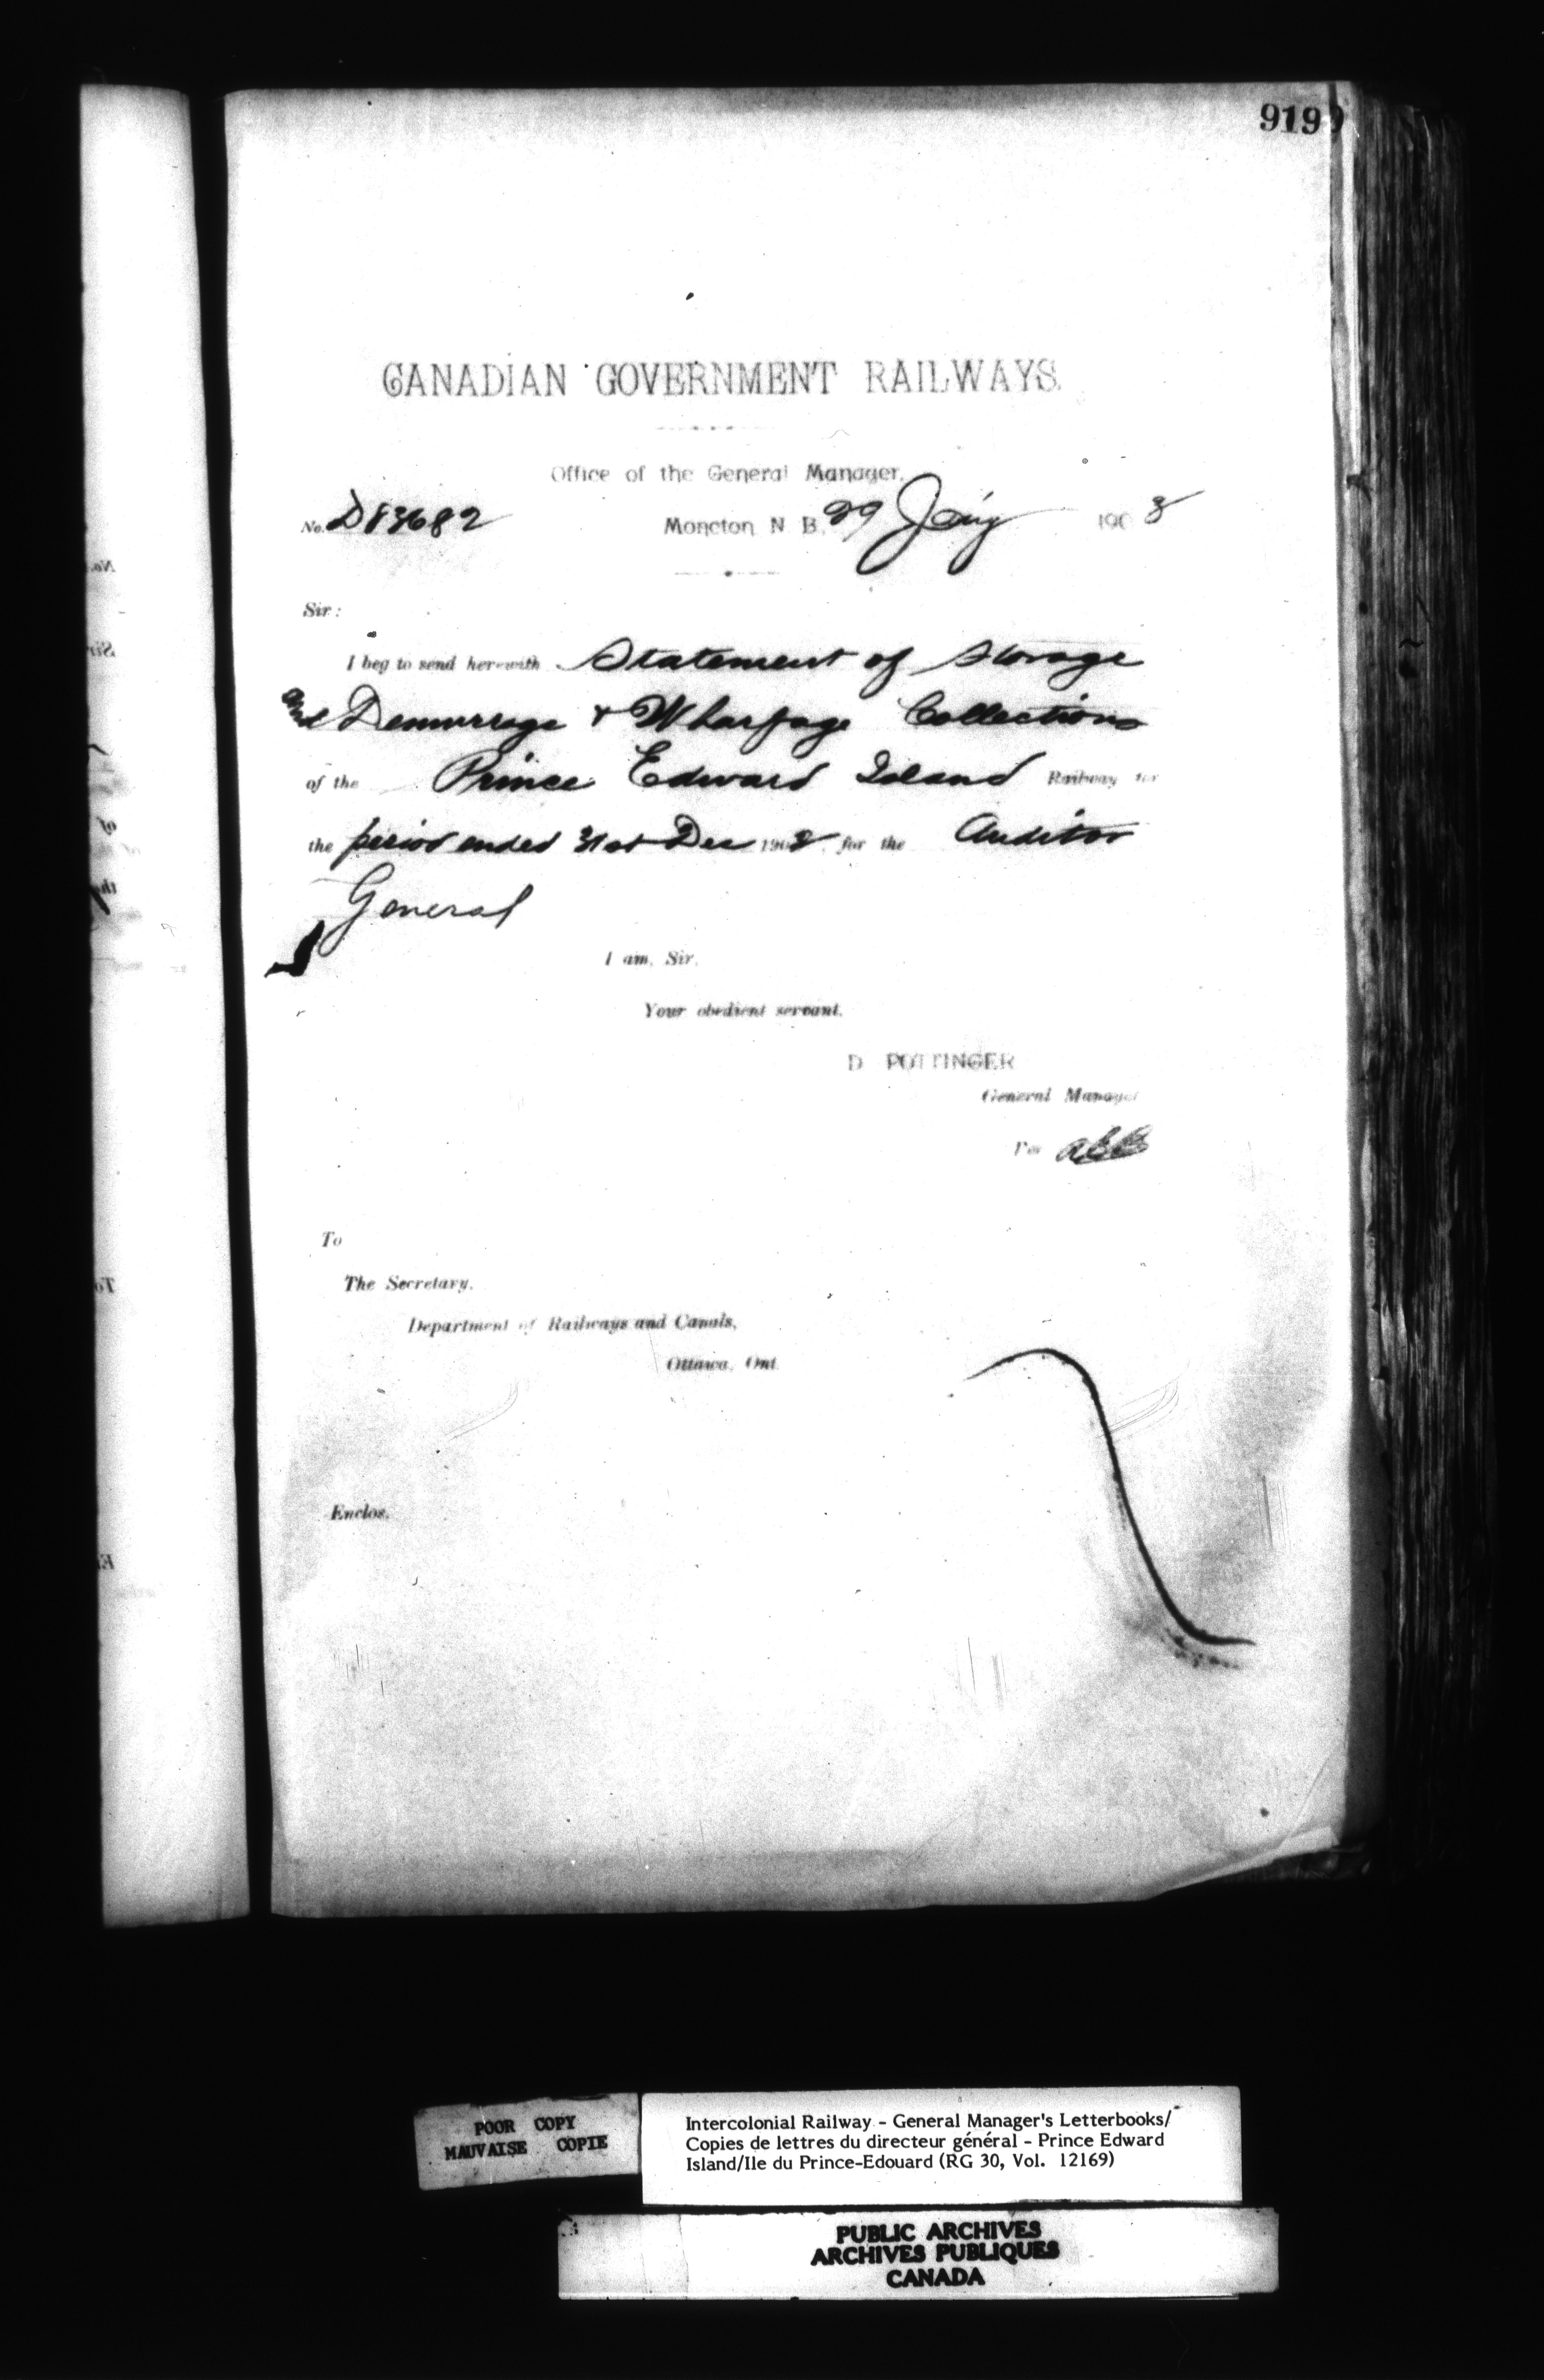 919
CANADIAN GOVERNMENT RAILWAYS.
Office of the General Manager,
No. D83682 Moncton N B, 29 Jany 1903
Sir:
I beg to send herewith Statement of Storage
and Demurrage & Wharfage Collections
of the Prince Edward Island Railway for
the period ended 31st Dec 1902 for the Auditor
General
I am, Sir,
Your obedient servant,
D POTTINGER
General Manager
Per
To
The Secretary,
Department of Railways and Canals,
Ottawa, Ont.
Enclos.
POOR COPY
MAUVAISE COPIE
Intercolonial Railway - General Manager's Letterbooks/
Copies de lettres du directeur général - Prince Edward
Island/Ile du Prince-Edouard (RG 30, Vol. 12169)
PUBLIC ARCHIVES
ARCHIVES PUBLIQUES
CANADA